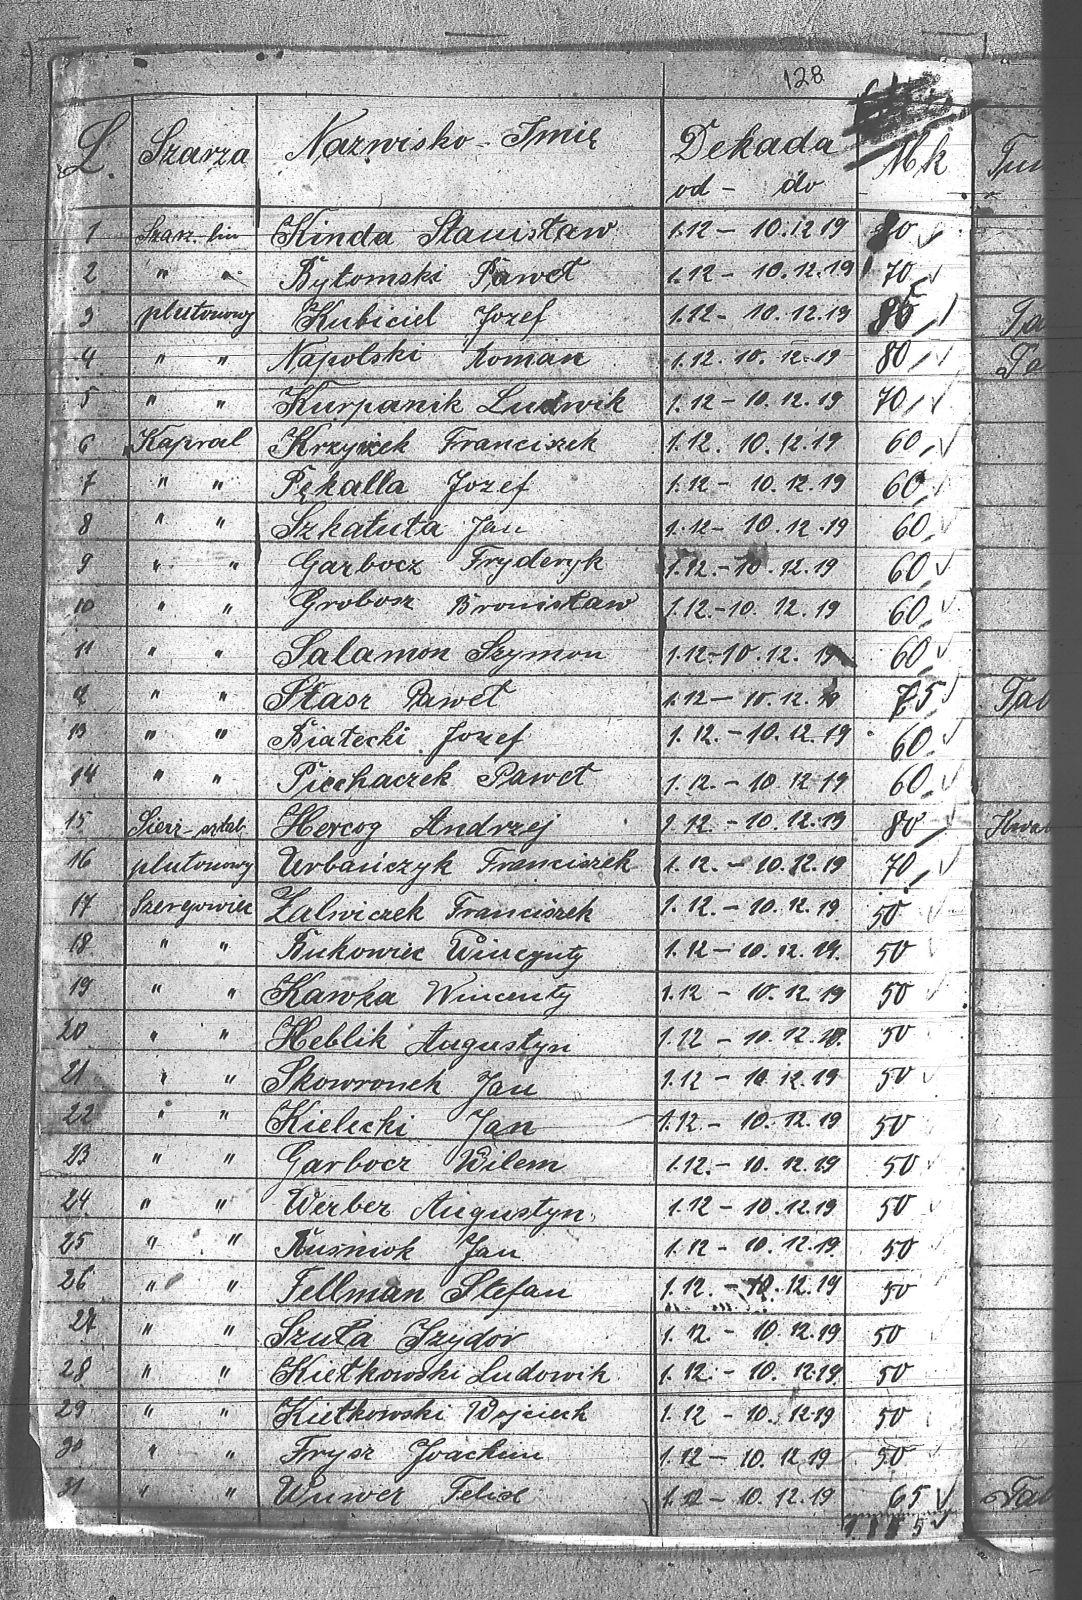 128
L. Szarża Nazwisko - Imię Dekada Mk
od - do
1 Kinda Stanisław 1.12 - 10.12 19 80
2 " " Bytomski Paweł 1.12 - 10.12.19 70
3 plutonowy Kubiciel Jozef 1.12 - 10.12.19 85
4 " " Napolski Roman 1.12. 10.12.19 80
5 " " Kurpanik Ludwik 1.12 - 10.12.19 70
6 Kapral Krzyżek Franciszek 1.12. 10.12.19 60
7 " " Pękalla Jozef 1.12 - 10.12.19 60
8 " " Szkatuła Jan 1.12 - 10.12.19 60
9 " " Garbocz Fryderyk 1.12. - 10.12.19 60
10 " " Grobosz Bronisław 1.12 - 10.12.19 60
11 " " Salamon Szymon 1.12 - 10.12.19 60
12 " " Stasz Paweł 1.12 - 10.12.19 75
13 " " Białecki Jozef 1.12. - 10.12.19 60
14 " " Piechaczek Paweł 1.12. - 10.12 19 60
15 Sierż-sztab. Hercog Andrzej 1.12. - 10.12.19 80
16 plutonowy Urbańczyk Franciszek 1.12. - 10.12.19 70
17 Szeregowiec Zalwiczek Franciszek 1.12. - 10.12.19 50
18. " " Bukowiec Wincynty 1.12 - 10.12.19. 50
19 " " Kawka Wincenty 1.12 - 10.12.19 50
20 " " Heblik Augustyn 1.12 - 10.12.19. 50
21 " " Skowronek Jan 1.12 - 10.12.19 50
22 " " Kielecki Jan 1.12. - 10.12.19 50
23 " " Garbocz Wilem 1.12. - 10.12.19 50
24. " " Werber Augustyn 1.12 - 10.12.19 50
25 " " Kuśniok Jan 1.12 - 10.12.19. 50
26 " " Fellman Stefan 1.12. - 10.12.19 50
27 " " Szuła Izydor 1.12 - 10.12.19 50
28 " " Kiełkowski Ludowik 1.12. - 10.12.19 50
29 " " Kiełkowski Wojciech 1.12 - 10.12.19 50
30 " " Frysz Joachim 1.12 - 10.12.19 50
31 " " Wuwer Felix 1.12 - 10.12.19 65